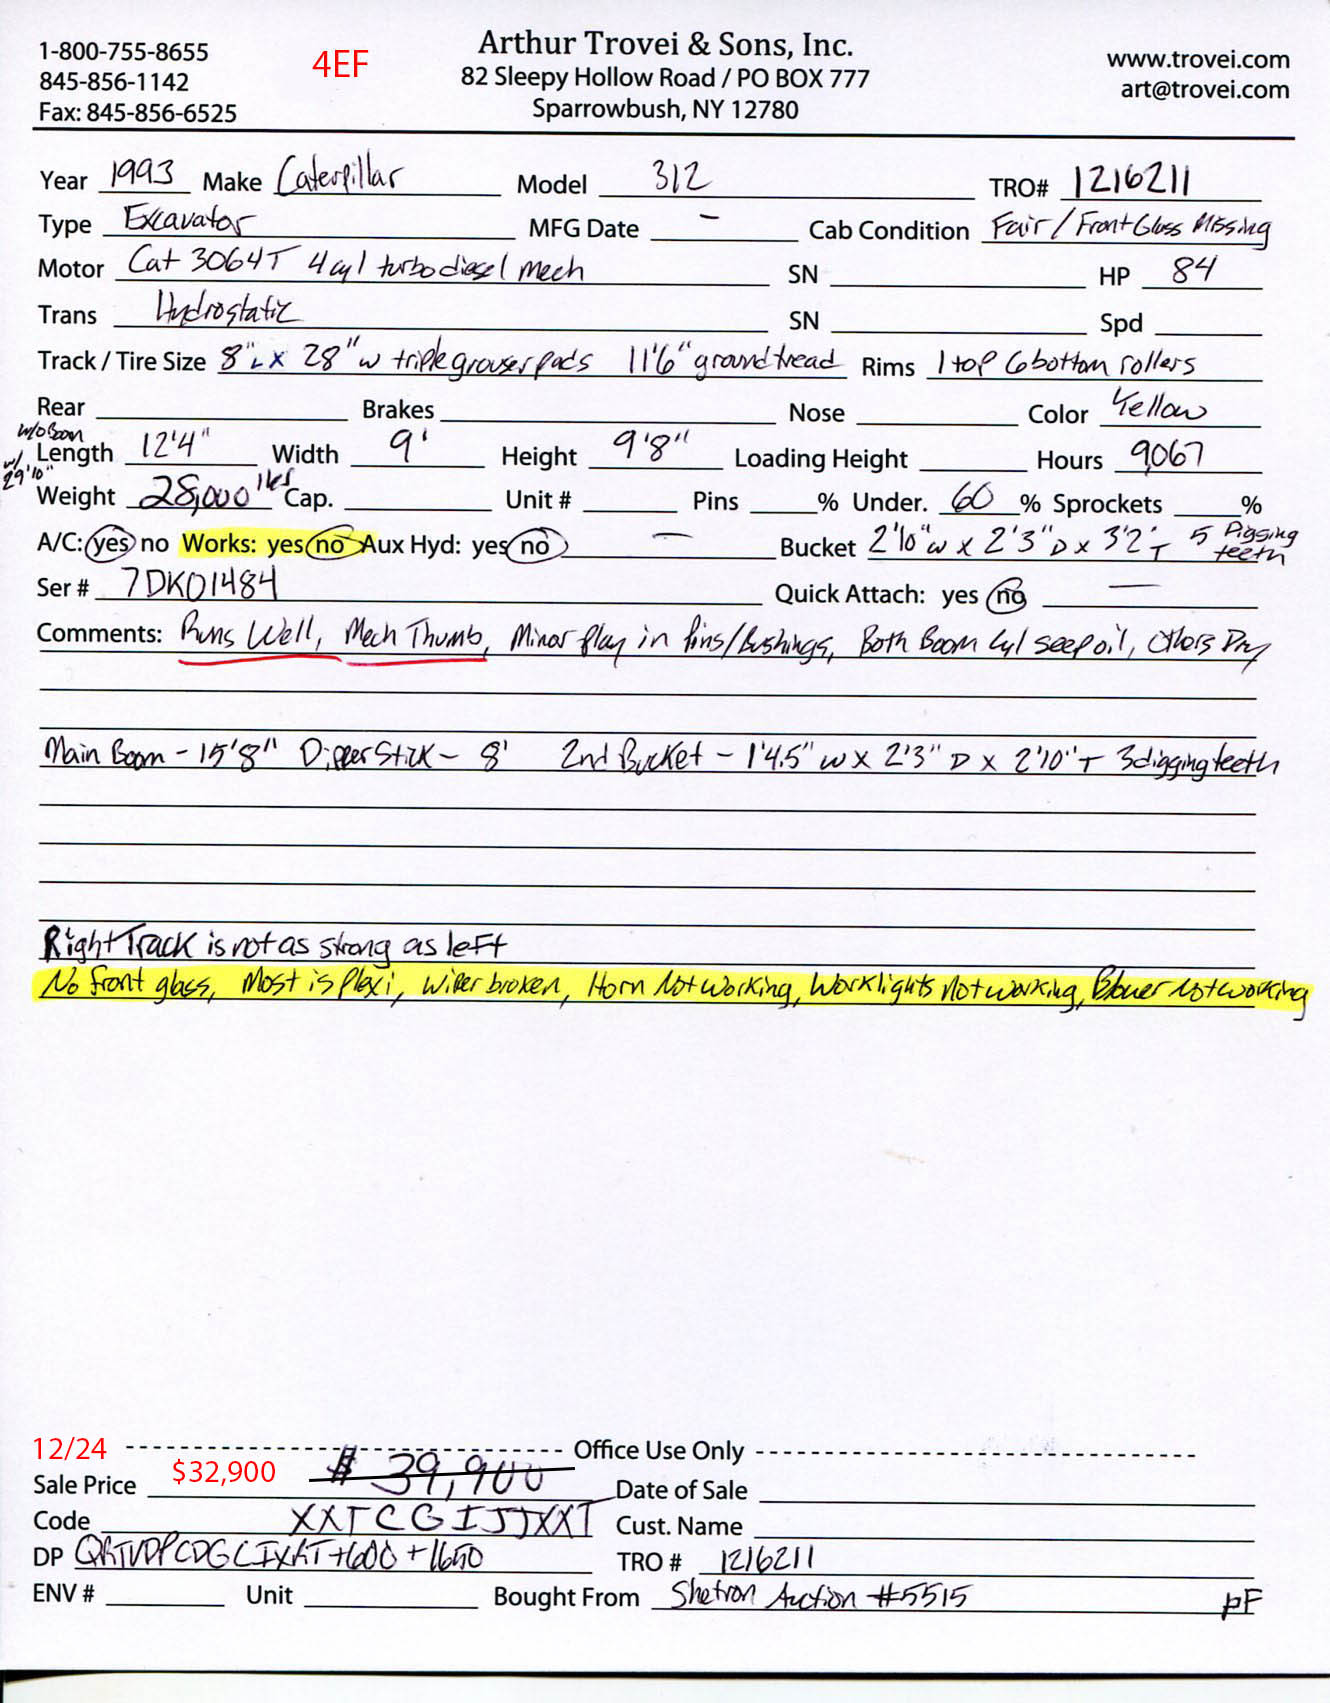 1-800-755-8655
845-856-1142
Fax: 845-856-6525
4EF
Arthur Trovei & Sons, Inc.
82 Sleepy Hollow Road / PO BOX 777
Sparrowbush, NY 12780
www.trovei.com
art@trovei.com
Year 1993 Make Caterpillar Model 312 TRO# 1216211
Type Excavator MFG Date – Cab Condition Fair / Front Glass Missing
Motor Cat 3064T 4 cyl turbo diesel mech SN HP 84
Trans Hydrostatic SN Spd
Track / Tire Size 8"L x 28"w triple grouser pads 11'6" ground tread Rims 1 top 6 bottom rollers
Rear Brakes Nose Color Yellow
w/o Boom
Length 12'4" Width 9' Height 9'8" Loading Height Hours 9,067
w/ 29'10"
Weight 28,000 lbs Cap. Unit # Pins % Under. 60 % Sprockets %
A/C: yes no Works: yes no Aux Hyd: yes no – Bucket 2'10"w x 2'3"D x 3'2"T 5 Digging teeth
Ser # 7DK01484 Quick Attach: yes no –
Comments: Runs Well, Mech Thumb, Minor play in Pins/Bushings, Both Boom Cyl seep oil, Others Dry
Main Boom - 15'8" Dipper Stick - 8' 2nd Bucket - 1'4.5" w x 2'3" D x 2'10" T 3 digging teeth
Right Track is not as strong as left
No front glass, Most is plexi, Wiper broken, Horn Not working, Worklights Not working, Blower Not working
12/24 Office Use Only
Sale Price $32,900 $39,900 Date of Sale
Code XXTCGIJJXXT Cust. Name
DP +600 + 1650 TRO # 1216211
ENV # Unit Bought From Shetron Auction #5515
PF